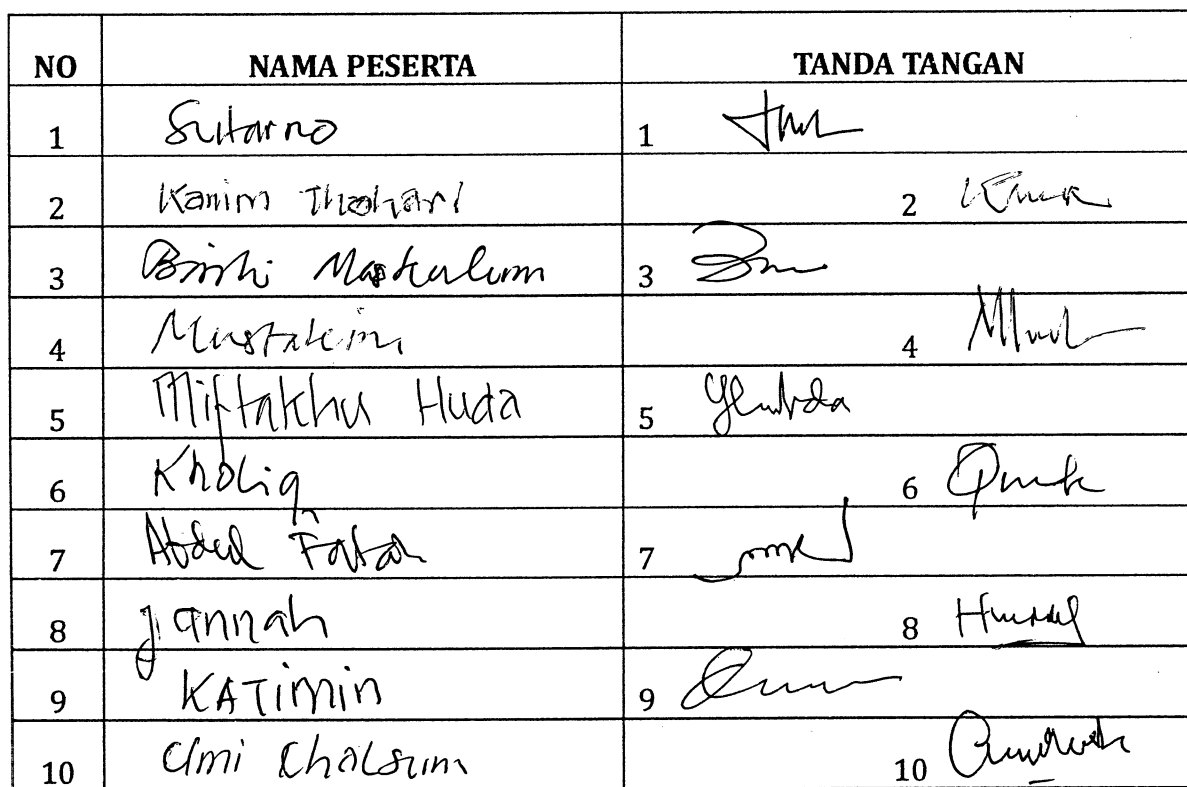 NO NAMA PESERTA TANDA TANGAN
1 Sutarno 1
2 Kanim Thohari 2
3 Binti Maskulum 3
4 Mustakim 4
5 Miftakhu Huda 5
6 Kholiq 6
7 Abdul Fatah 7
8 Jannah 8
9 KATimin 9
10 Umi Cholsum 10